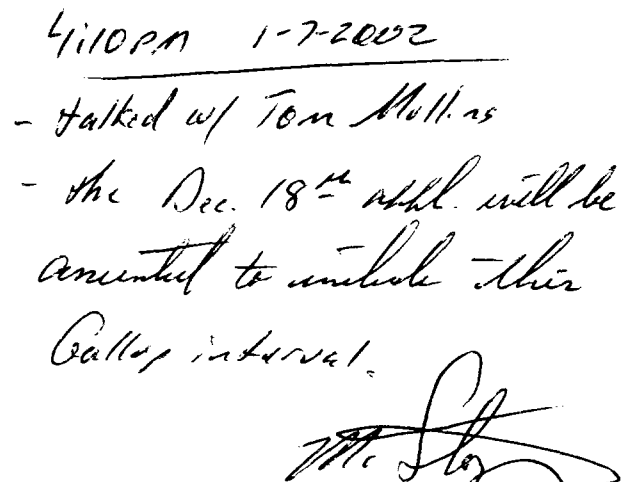 4:10 PM 1-7-2002
- talked w/ Tom Mullins
- the Dec. 18th appl. will be
amended to include this
Gallup interval.
M.